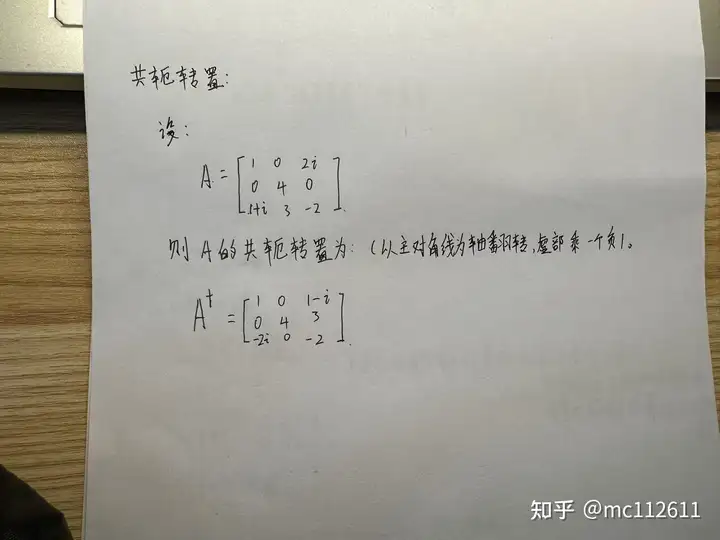 共轭转置:
设:
A = [ 1 0 2i
0 4 0
1+i 3 -2 ].
则 A 的共轭转置为: (以主对角线为轴翻转,虚部乘一个负1。
A† = [ 1 0 1-i
0 4 3
-2i 0 -2 ].
知乎 @mc112611